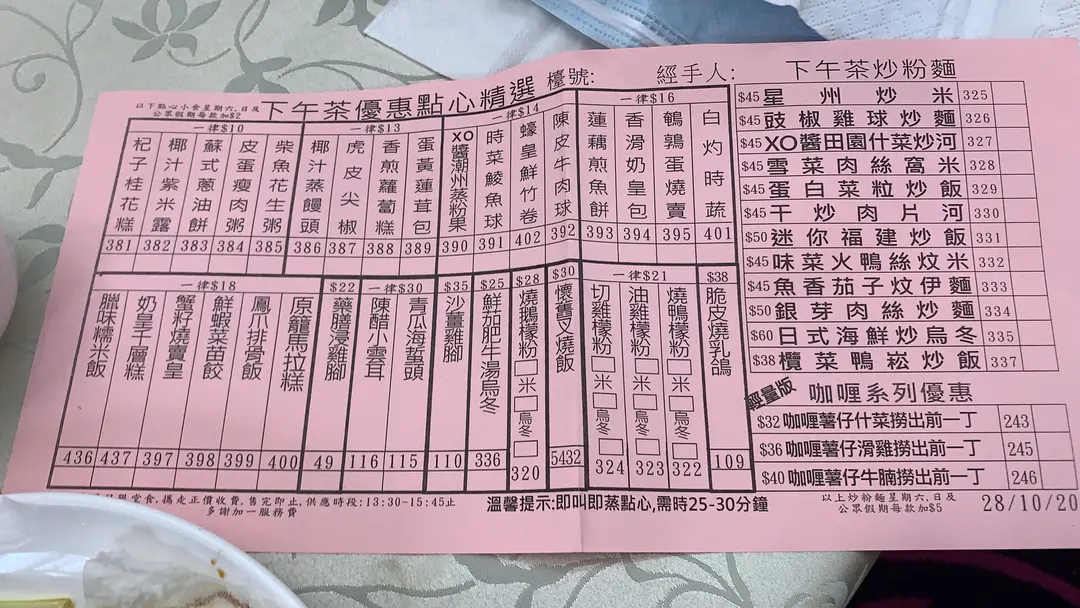 下午茶優惠點心精選
檯號:
經手人:
下午茶炒粉麵
以下點心小食星期六,日及
公眾假期每款加$2
一律$10
杞子桂花糕 381
椰汁紫米露 382
蘇式蔥油餅 383
皮蛋瘦肉粥 384
柴魚花生粥 385
一律$13
椰汁蒸饅頭 386
虎皮尖椒 387
香煎蘿蔔糕 388
蛋黃蓮茸包 389
一律$14
XO醬潮州蒸粉果 390
時菜鯪魚球 391
蠔皇鮮竹卷 402
陳皮牛肉球 392
一律$16
蓮藕煎魚餅 393
香滑奶皇包 394
鵪鶉蛋燒賣 395
白灼時蔬 401
一律$18
臘味糯米飯 436
奶皇千層糕 437
蟹籽燒賣皇 397
鮮蝦菜苗餃 398
鳳爪排骨飯 399
原籠馬拉糕 400
$22
藥膳浸雞腳 49
一律$30
陳醋小雲耳 116
青瓜海蜇頭 115
$35
沙薑雞腳 110
$25
鮮茄肥牛湯烏冬 336
$28
燒鵝檬粉 米 烏冬 320
$30
懷舊叉燒飯 5432
一律$21
切雞檬粉 米 烏冬 324
油雞檬粉 米 烏冬 323
燒鴨檬粉 米 烏冬 322
$38
脆皮燒乳鴿 109
$45 星州炒米 325
$45 豉椒雞球炒麵 326
$45 XO醬田園什菜炒河 327
$45 雪菜肉絲窩米 328
$45 蛋白菜粒炒飯 329
$45 干炒肉片河 330
$50 迷你福建炒飯 331
$45 味菜火鴨絲炆米 332
$45 魚香茄子炆伊麵 333
$50 銀芽肉絲炒麵 334
$60 日式海鮮炒烏冬 335
$38 欖菜鴨崧炒飯 337
輕量版
咖喱系列優惠
$32 咖喱薯仔什菜撈出前一丁 243
$36 咖喱薯仔滑雞撈出前一丁 245
$40 咖喱薯仔牛腩撈出前一丁 246
堂食,攜走正價收費,售完即止,供應時段:13:30-15:45止
多謝加一服務費
溫馨提示:即叫即蒸點心,需時25-30分鐘
以上炒粉麵星期六,日及
公眾假期每款加$5
28/10/20